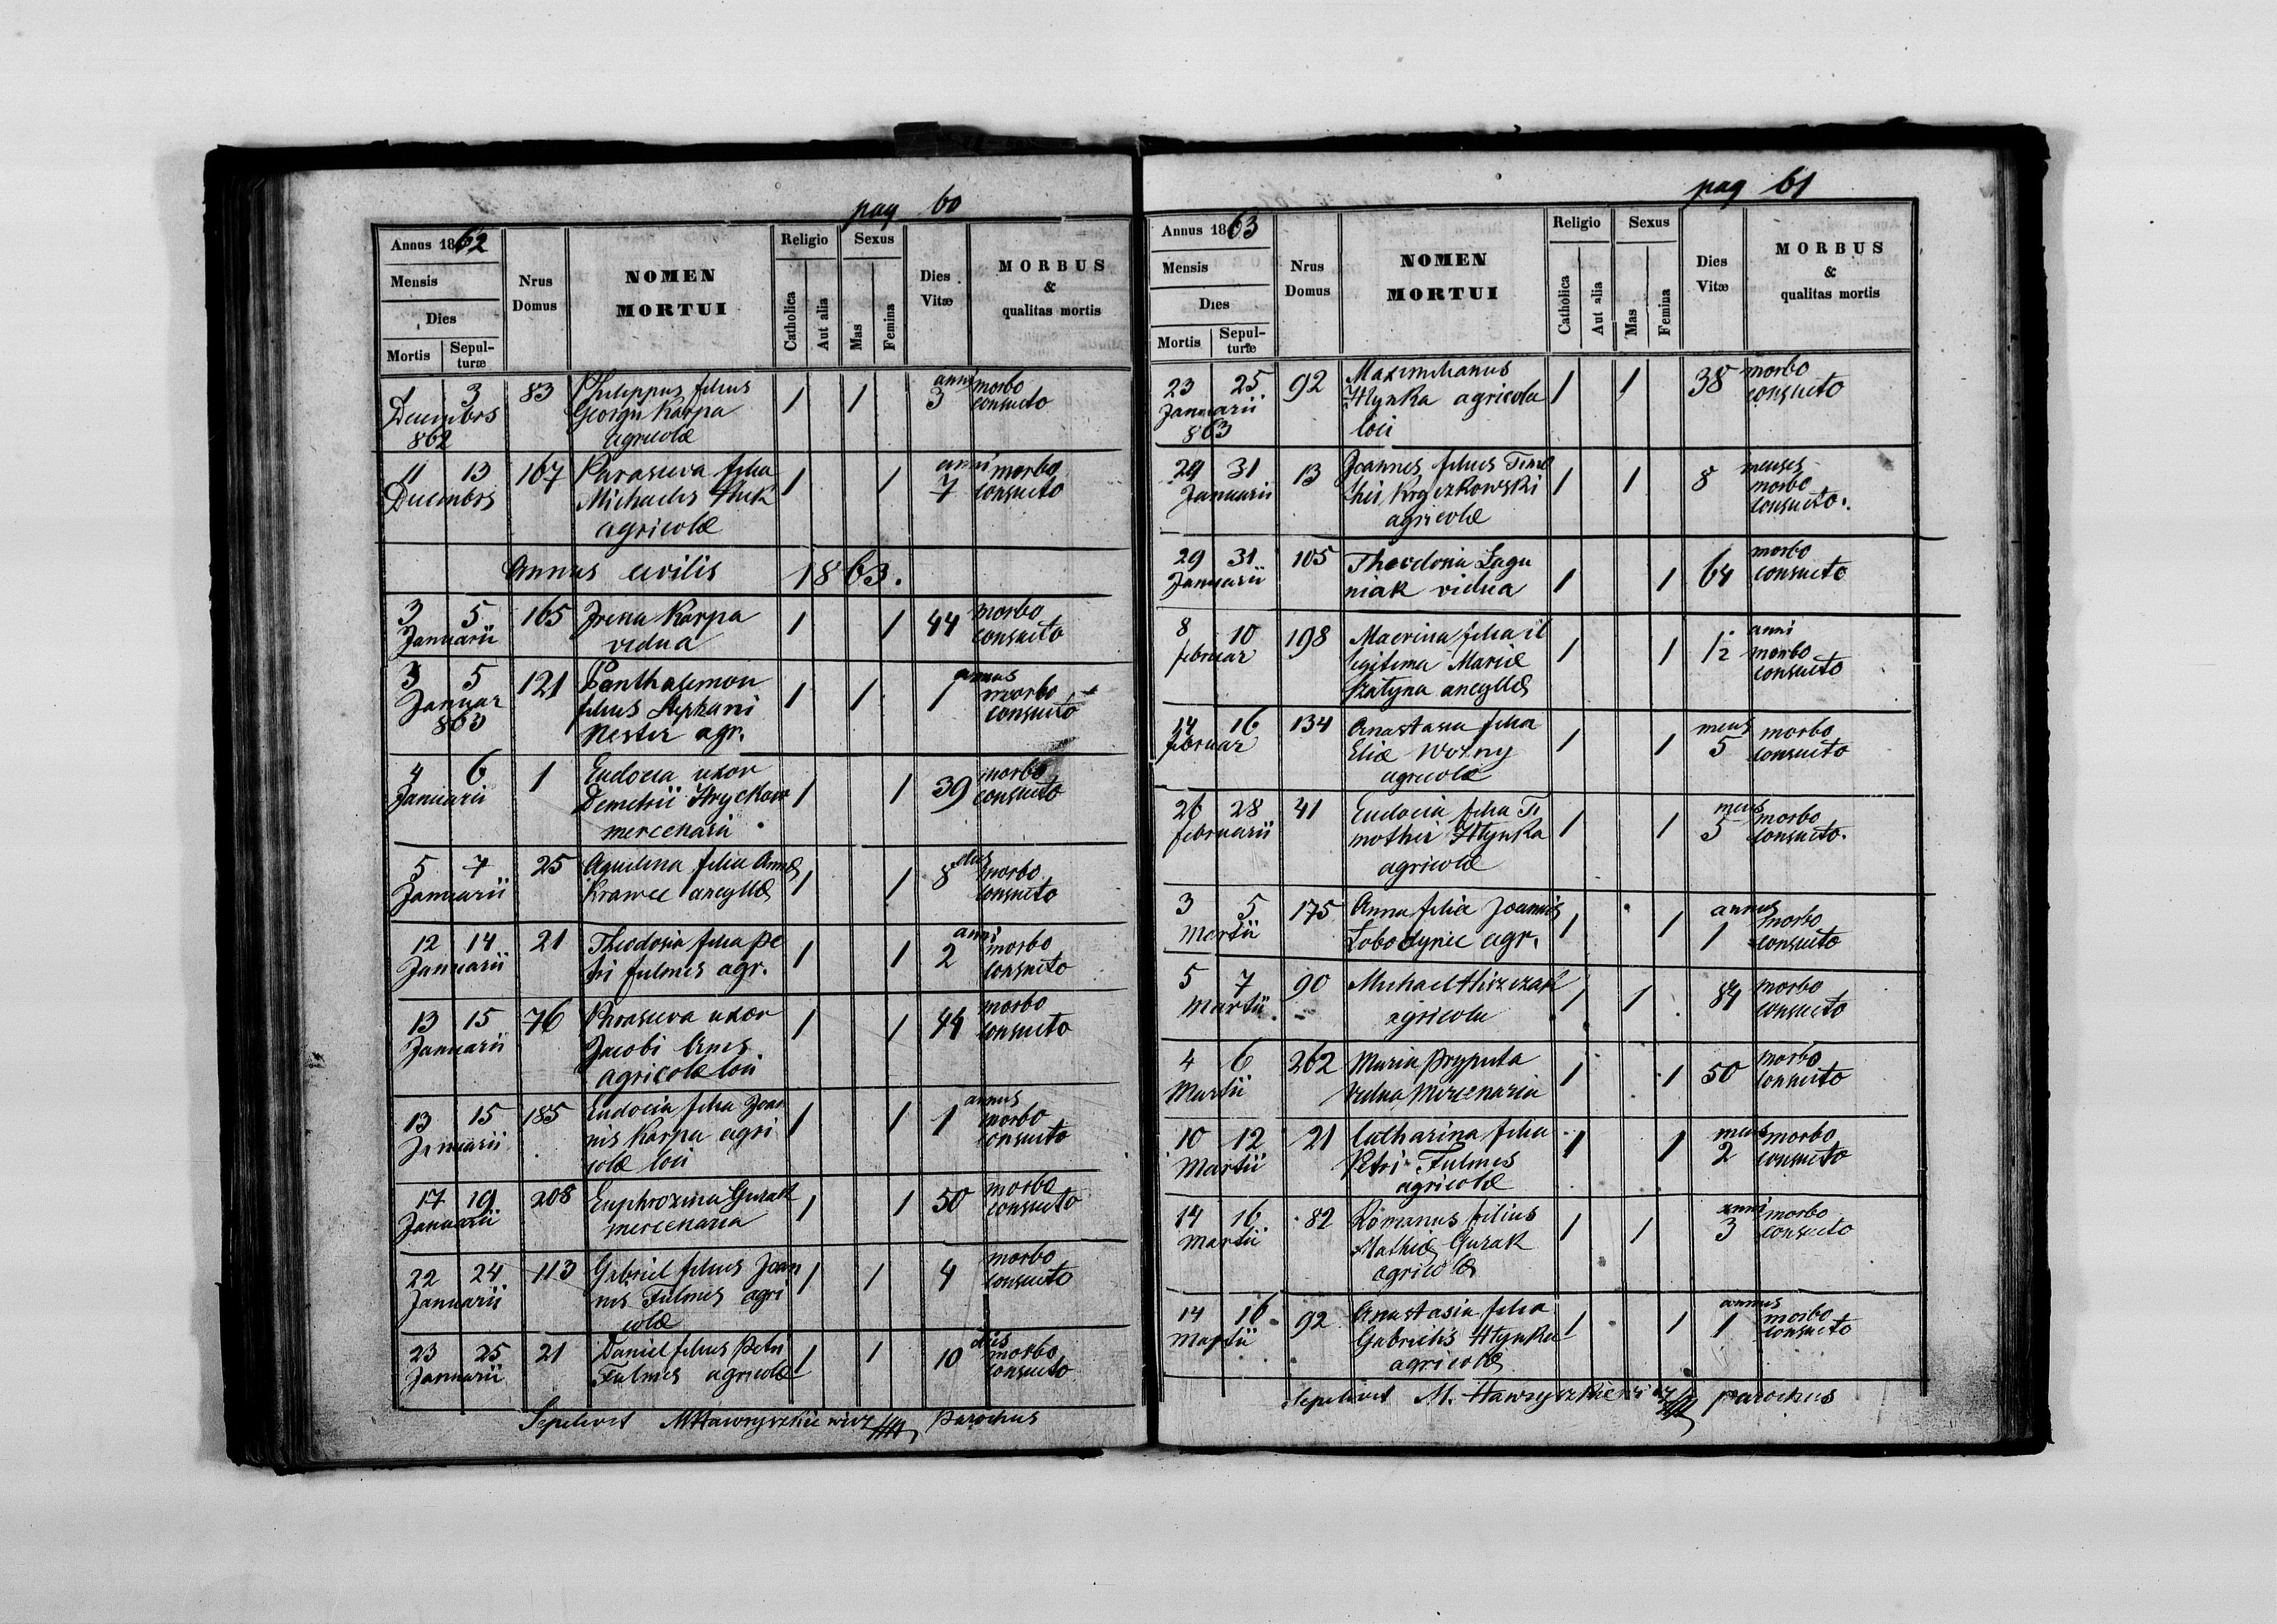 pag 60
Annus 1862
Mensis
Dies
Mortis
Sepul-
turæ
Nrus
Domus
NOMEN
MORTUI
Religio
Catholica
Aut alia
Sexus
Mas
Femina
Dies
Vitæ
MORBUS
&
qualitas mortis
1 3 83 Philippus filius 1 1 anni 3 morbo
Decembris Georgii Karpa consueto
862 agricolæ
11 13 167 Parasceva filia 1 1 anni 7 morbo
Decembris Michaelis consueto
agricolæ
Annus civilis 1863.
3 5 165 Irena Karpa 1 1 44 morbo
Januarii vidua consueto
3 5 121 Panthalemon 1 1 annus 1 morbo
Januar filius Stephani consueto
863 Nester agr.
4 6 1 Eudocia uxor 1 1 39 morbo
Januarii Demetrii consueto
mercenarii
5 7 25 Aquilina filia Annæ 1 1 8 dies morbo
Januarii Krawec ancyllæ consueto
12 14 21 Theodosia filia Pe 1 1 anni 2 morbo
Januarii tri Fulmes agr. consueto
13 15 76 Parasceva uxor 1 1 44 morbo
Januarii Jacobi consueto
agricolæ loci
13 15 185 Eudocia filia Joan 1 1 annus 1 morbo
Januarii nis Karpa agri consueto
colæ loci
17 19 208 Euphrozina Gurak 1 1 50 morbo
Januarii mercenaria consueto
22 24 113 Gabriel filius Joan 1 1 4 morbo
Januarii nis Fulmes agri consueto
colæ
23 25 21 Daniel filius Petri 1 1 10 dies morbo
Januarii Fulmes agricolæ consueto
Sepelivit M Hawryszkiewicz parochus
pag 61
Annus 1863
Mensis
Dies
Mortis
Sepul-
turæ
Nrus
Domus
NOMEN
MORTUI
Religio
Catholica
Aut alia
Sexus
Mas
Femina
Dies
Vitæ
MORBUS
&
qualitas mortis
23 25 92 Maximilianus 1 1 38 morbo
Januarii Hlynka agricola consueto
863 loci
29 31 13 Joannes filius Timo 1 1 8 menses
Januarii thei Kryczkowski morbo
agricolæ consueto.
29 31 105 Theodosia Lagu 1 1 64 morbo
Januarii niak vidua consueto
8 10 198 Macrina filia il 1 1 1/2 anni
Februar legitima Mariæ morbo
Szatyna ancyllæ consueto
14 16 134 Anastasia filia 1 1 mens 5 morbo
Februar Eliæ Wozny consueto
agricolæ
26 28 41 Eudocia filia Ti 1 1 mens 5 morbo
Februarii mothei Hlynka consueto.
agricolæ
3 5 175 Anna filia Joannis 1 1 annus 1 morbo
Martii Lobodynec agr. consueto
5 7 90 Michael 1 1 84 morbo
Martii agricola consueto
4 6 262 Maria Pryputa 1 1 50 morbo
Martii vidua mercenaria consueto
10 12 21 Catharina filia 1 1 mens 2 morbo
Martii Petri Fulmes consueto
agricolæ
14 16 82 Romanus filius 1 1 anni 3 morbo
Martii Mathiæ Gurak consueto
agricolæ
14 16 92 Anastasia filia 1 1 annus 1 morbo
Martii Gabrielis Hlynka consueto
agricolæ
Sepelivit M. Hawryszkiewicz parochus